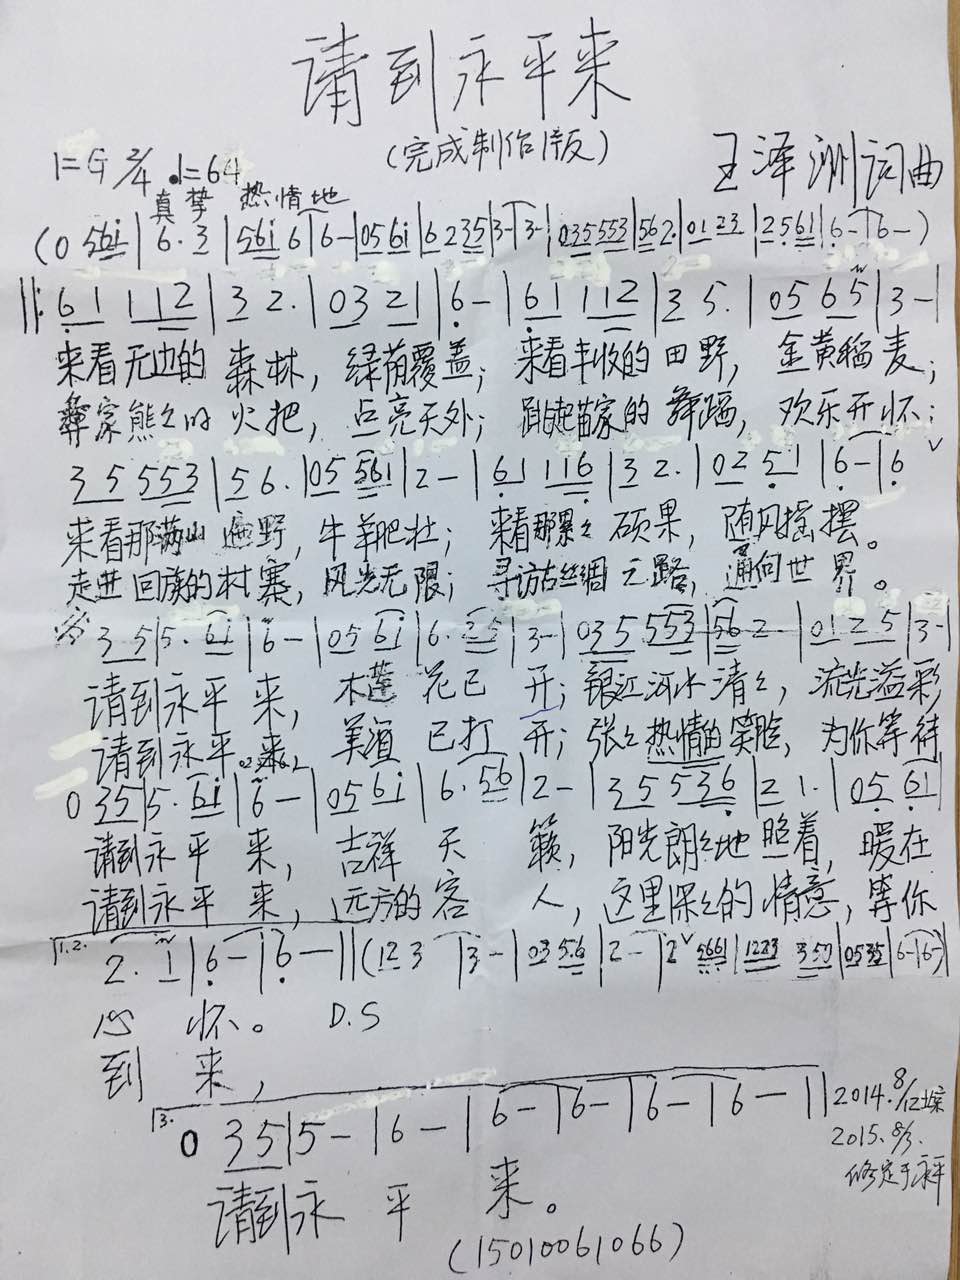 请到永平来
(完成制作版)
1=G 2/4 ♩=64
王泽洲词曲
真挚 热情地
(0 561|6.3|5616|6-|0561|6235|3-|3-|035553|562.|0123|2561|6-|6-)
‖:61 112|3 2.|03 21|6-|61 112|3 5.|05 65|3-|
来看无边的 森林, 绿荫覆盖; 来看丰收的 田野, 金黄稻麦;
彝家熊熊的 火把, 点亮天外; 跳起苗家的 舞蹈, 欢乐开怀;
35 553|56.|05 561|2-|61 116|3 2.|02 51|6-|6 ∨
来看那满山 遍野, 牛羊肥壮; 来看那累々 硕果, 随风摇摆。
走进回族的村寨, 风光无限; 寻访古丝绸之路, 通向世界。
35|5. 61|6-|05 61|6. 35|3-|035 553|56 2|0125|3-|
请到永平 来, 木莲 花已 开; 银江河水 清々, 流光溢彩
请到永平 来 美酒 已打 开; 张々热情的笑脸, 为你等待
0 35|5. 61|6-|05 61|6. 56|2-|35 536|2 1.|05 61|
请到永平 来, 吉祥 天 籁, 阳光朗々地 照着, 暖在
请到永平 来, 远方的客 人, 这里深々的 情意, 等你
1.2. 2. 1|6-|6-‖(12 3|3-|03 56|2-|2∨5661|1223 350|0535|6-|6-)
心 怀。 D.S
到 来,
3. 0 35|5-|6-|6-|6-|6-|6-‖
请到永 平 来。
2014.8/
2015.8/3.
修定于永平
(15010061066)